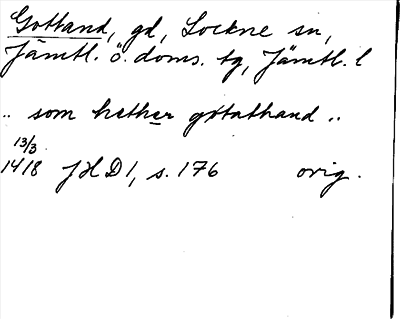 Gottand, gd, Lockne sn,
Jämtl. ö. doms. tg, Jämtl. l
.. som hether gøtathand ..
13/3
1418 JHD 1, s. 176 orig.